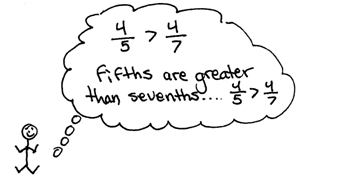 4/5 > 4/7
Fifths are greater
than sevenths.... 4/5 > 4/7